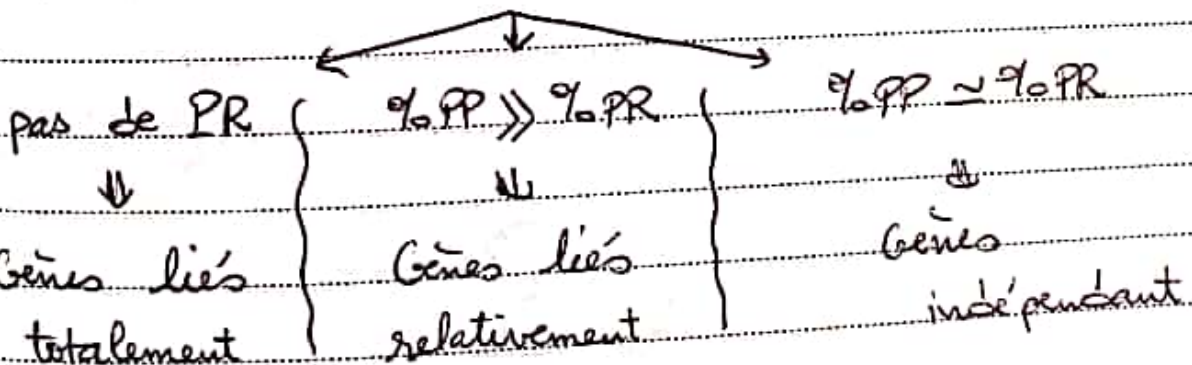 pas de PR
⇓
Gènes liés
totalement
%PP >> %PR
⇓
Gènes liés
relativement
%PP ≃ %PR
⇓
Gènes
indépendant